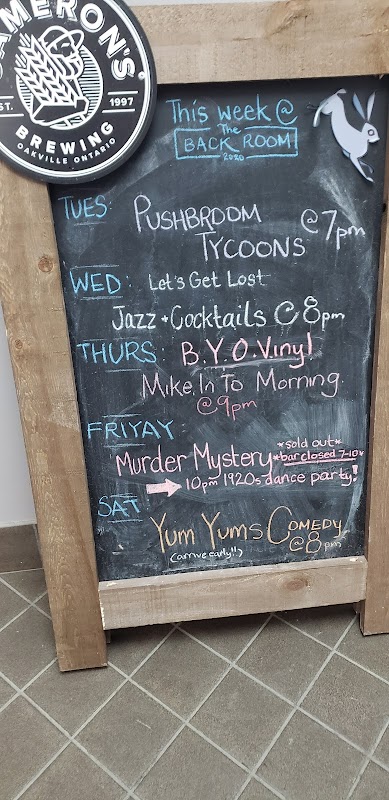 CAMERON'S
EST. 1997
BREWING
OAKVILLE ONTARIO
This week @
The
BACK ROOM
2020
TUES: PUSHBROOM @7pm
TYCOONS
WED: Let's Get Lost
Jazz + Cocktails @ 8pm
THURS: B.Y.O. Vinyl
Mike In To Morning
@9pm
FRIYAY:
*sold out*
Murder Mystery *bar closed 7-10*
10pm 1920s dance party!
SAT
Yum Yums COMEDY
@8pm
(arrive early!!)